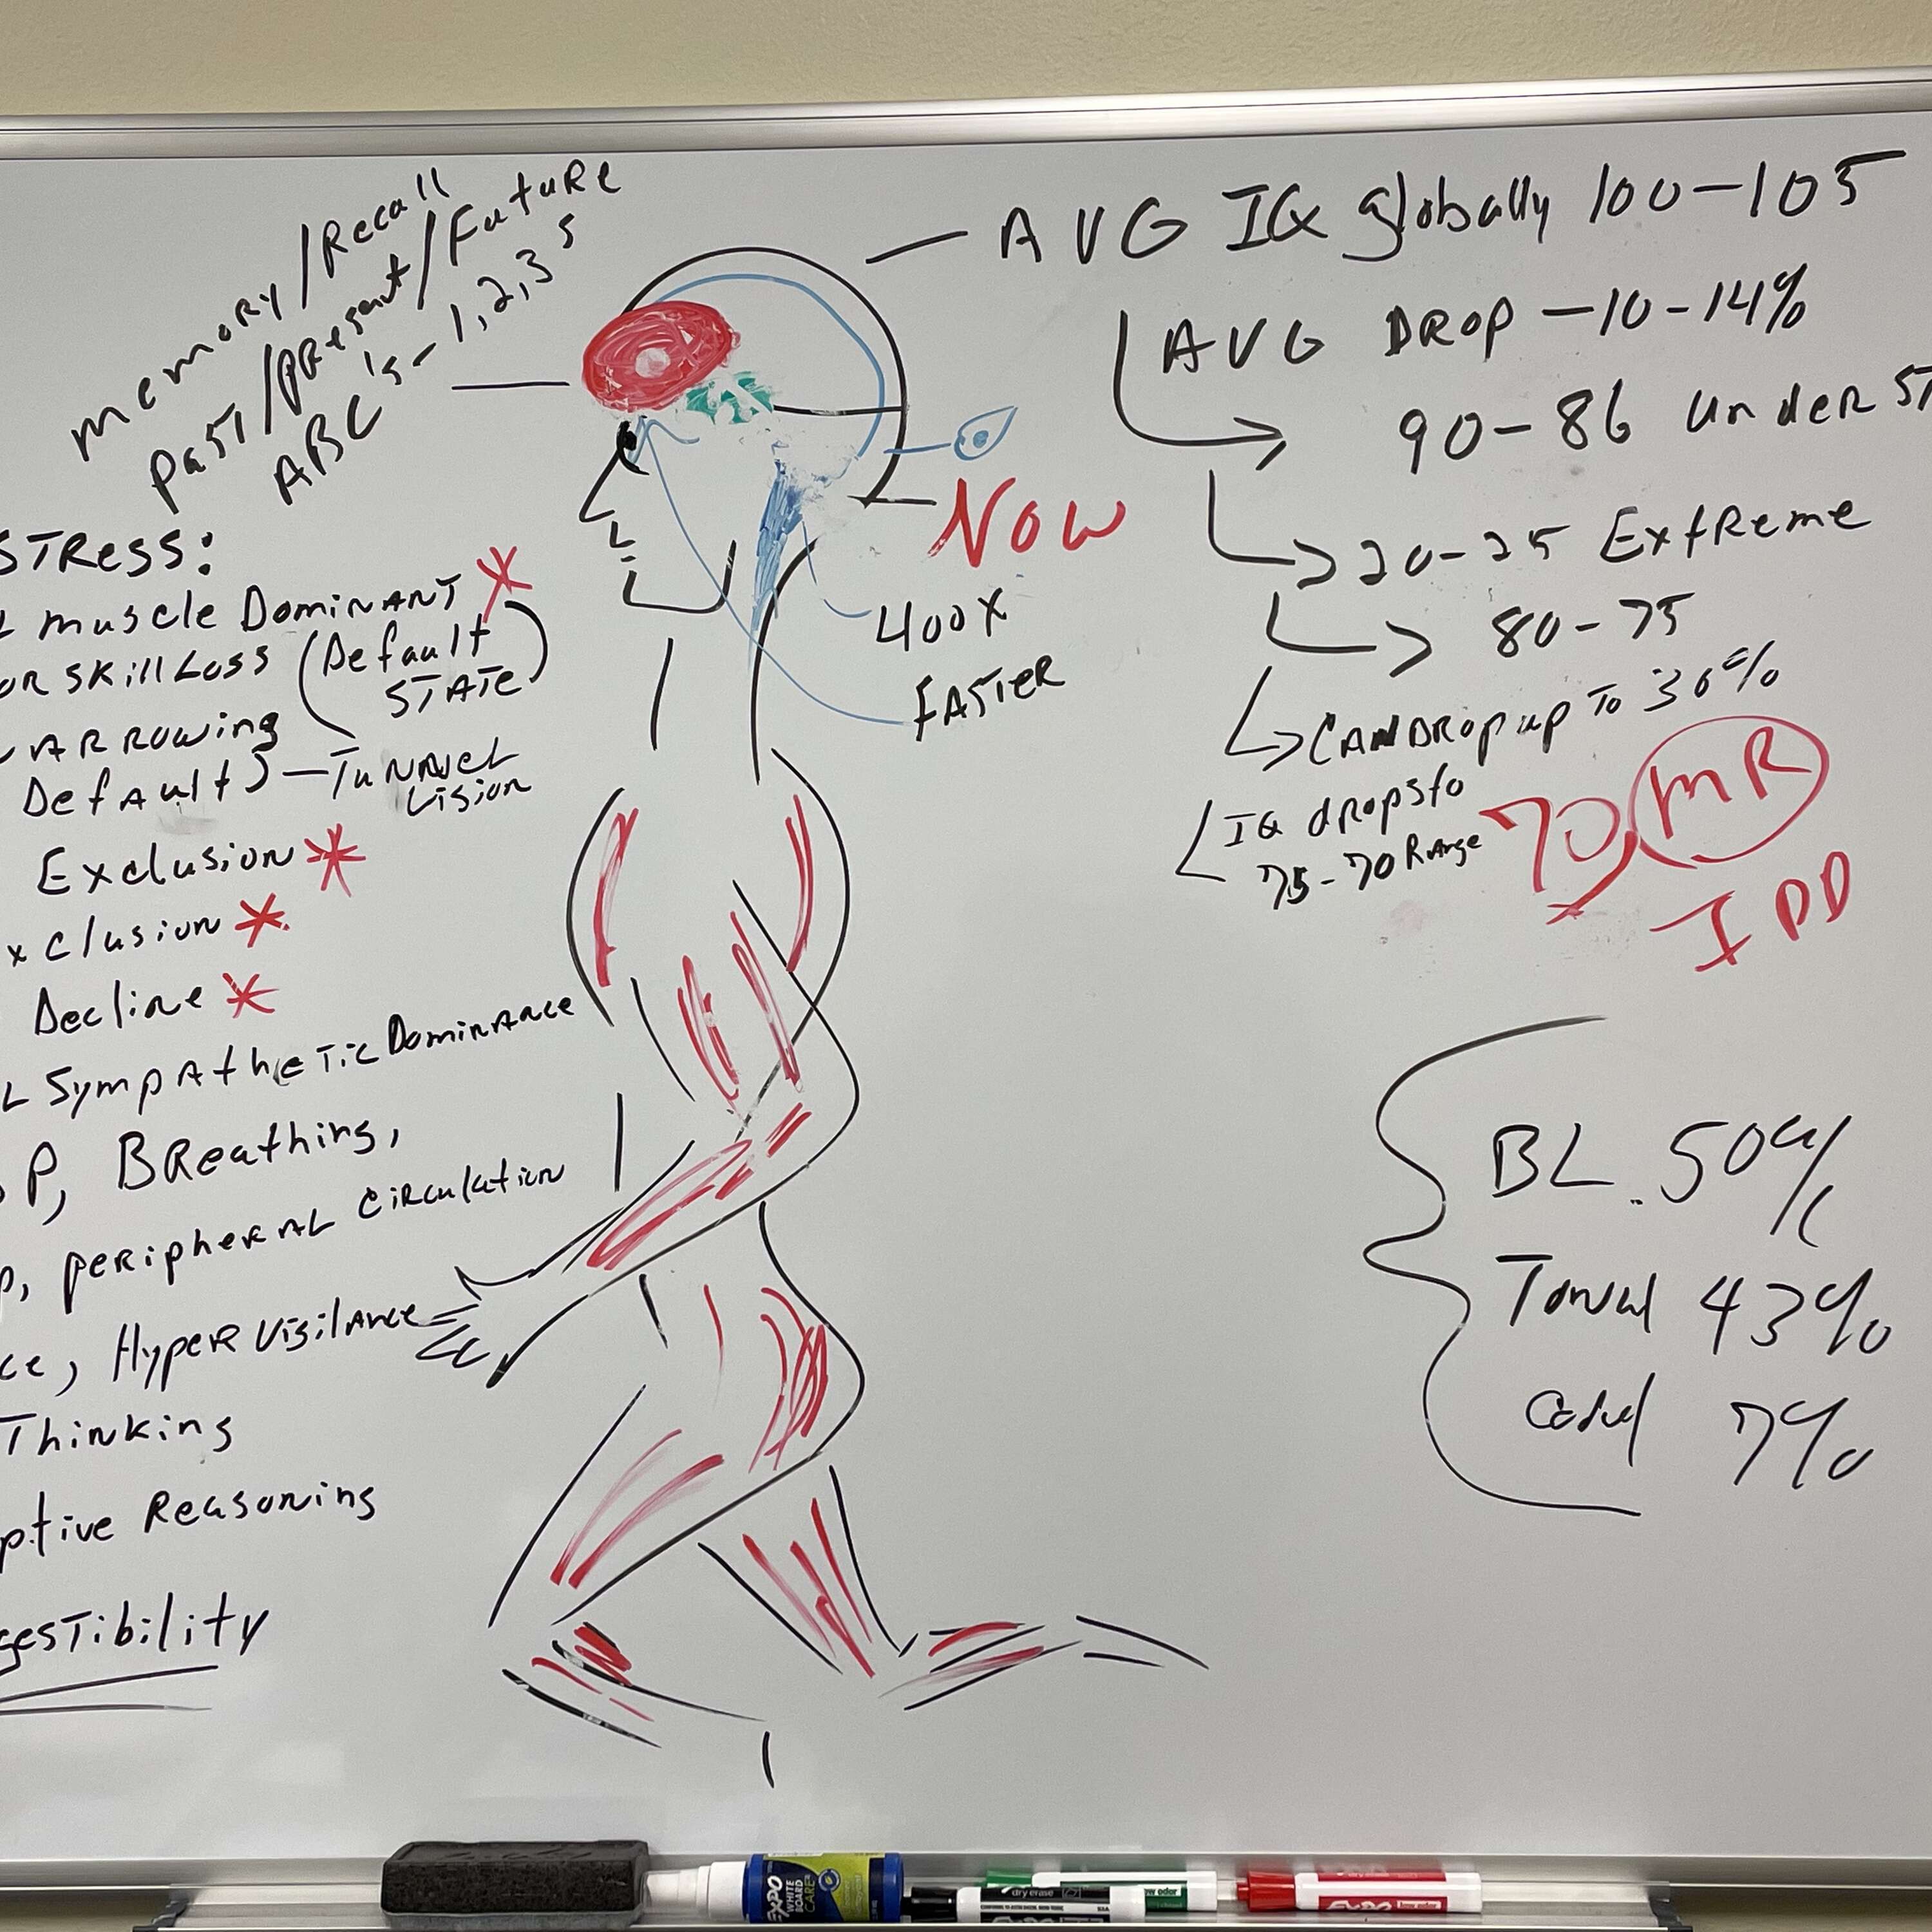 memory/Recall
past/present/Future
ABC's - 1,2,3s
STRESS:
muscle Dominant
OR skill Loss (Default STATE)
ARROWing
Default) — Tunnel Vision
Exclusion
xclusion
Decline
L Sympathetic Dominance
P, BReathing,
p, peripheral circulation
ce, Hyper Vigilance
Thinking
ptive Reasoning
gestibility
AVG IQ globally 100-105
AVG DROP -10-14%
90-86 under ST
20-25 Extreme
80-75
CAN DROP up To 30%
IQ drops to
75-70 Range
70 MR
IDD
NOW
400X
FASTER
BL. 50%
Tonal 43%
7%
EXPO
WHITE BOARD CARE
dry erase
low odor
EXPO
low odor